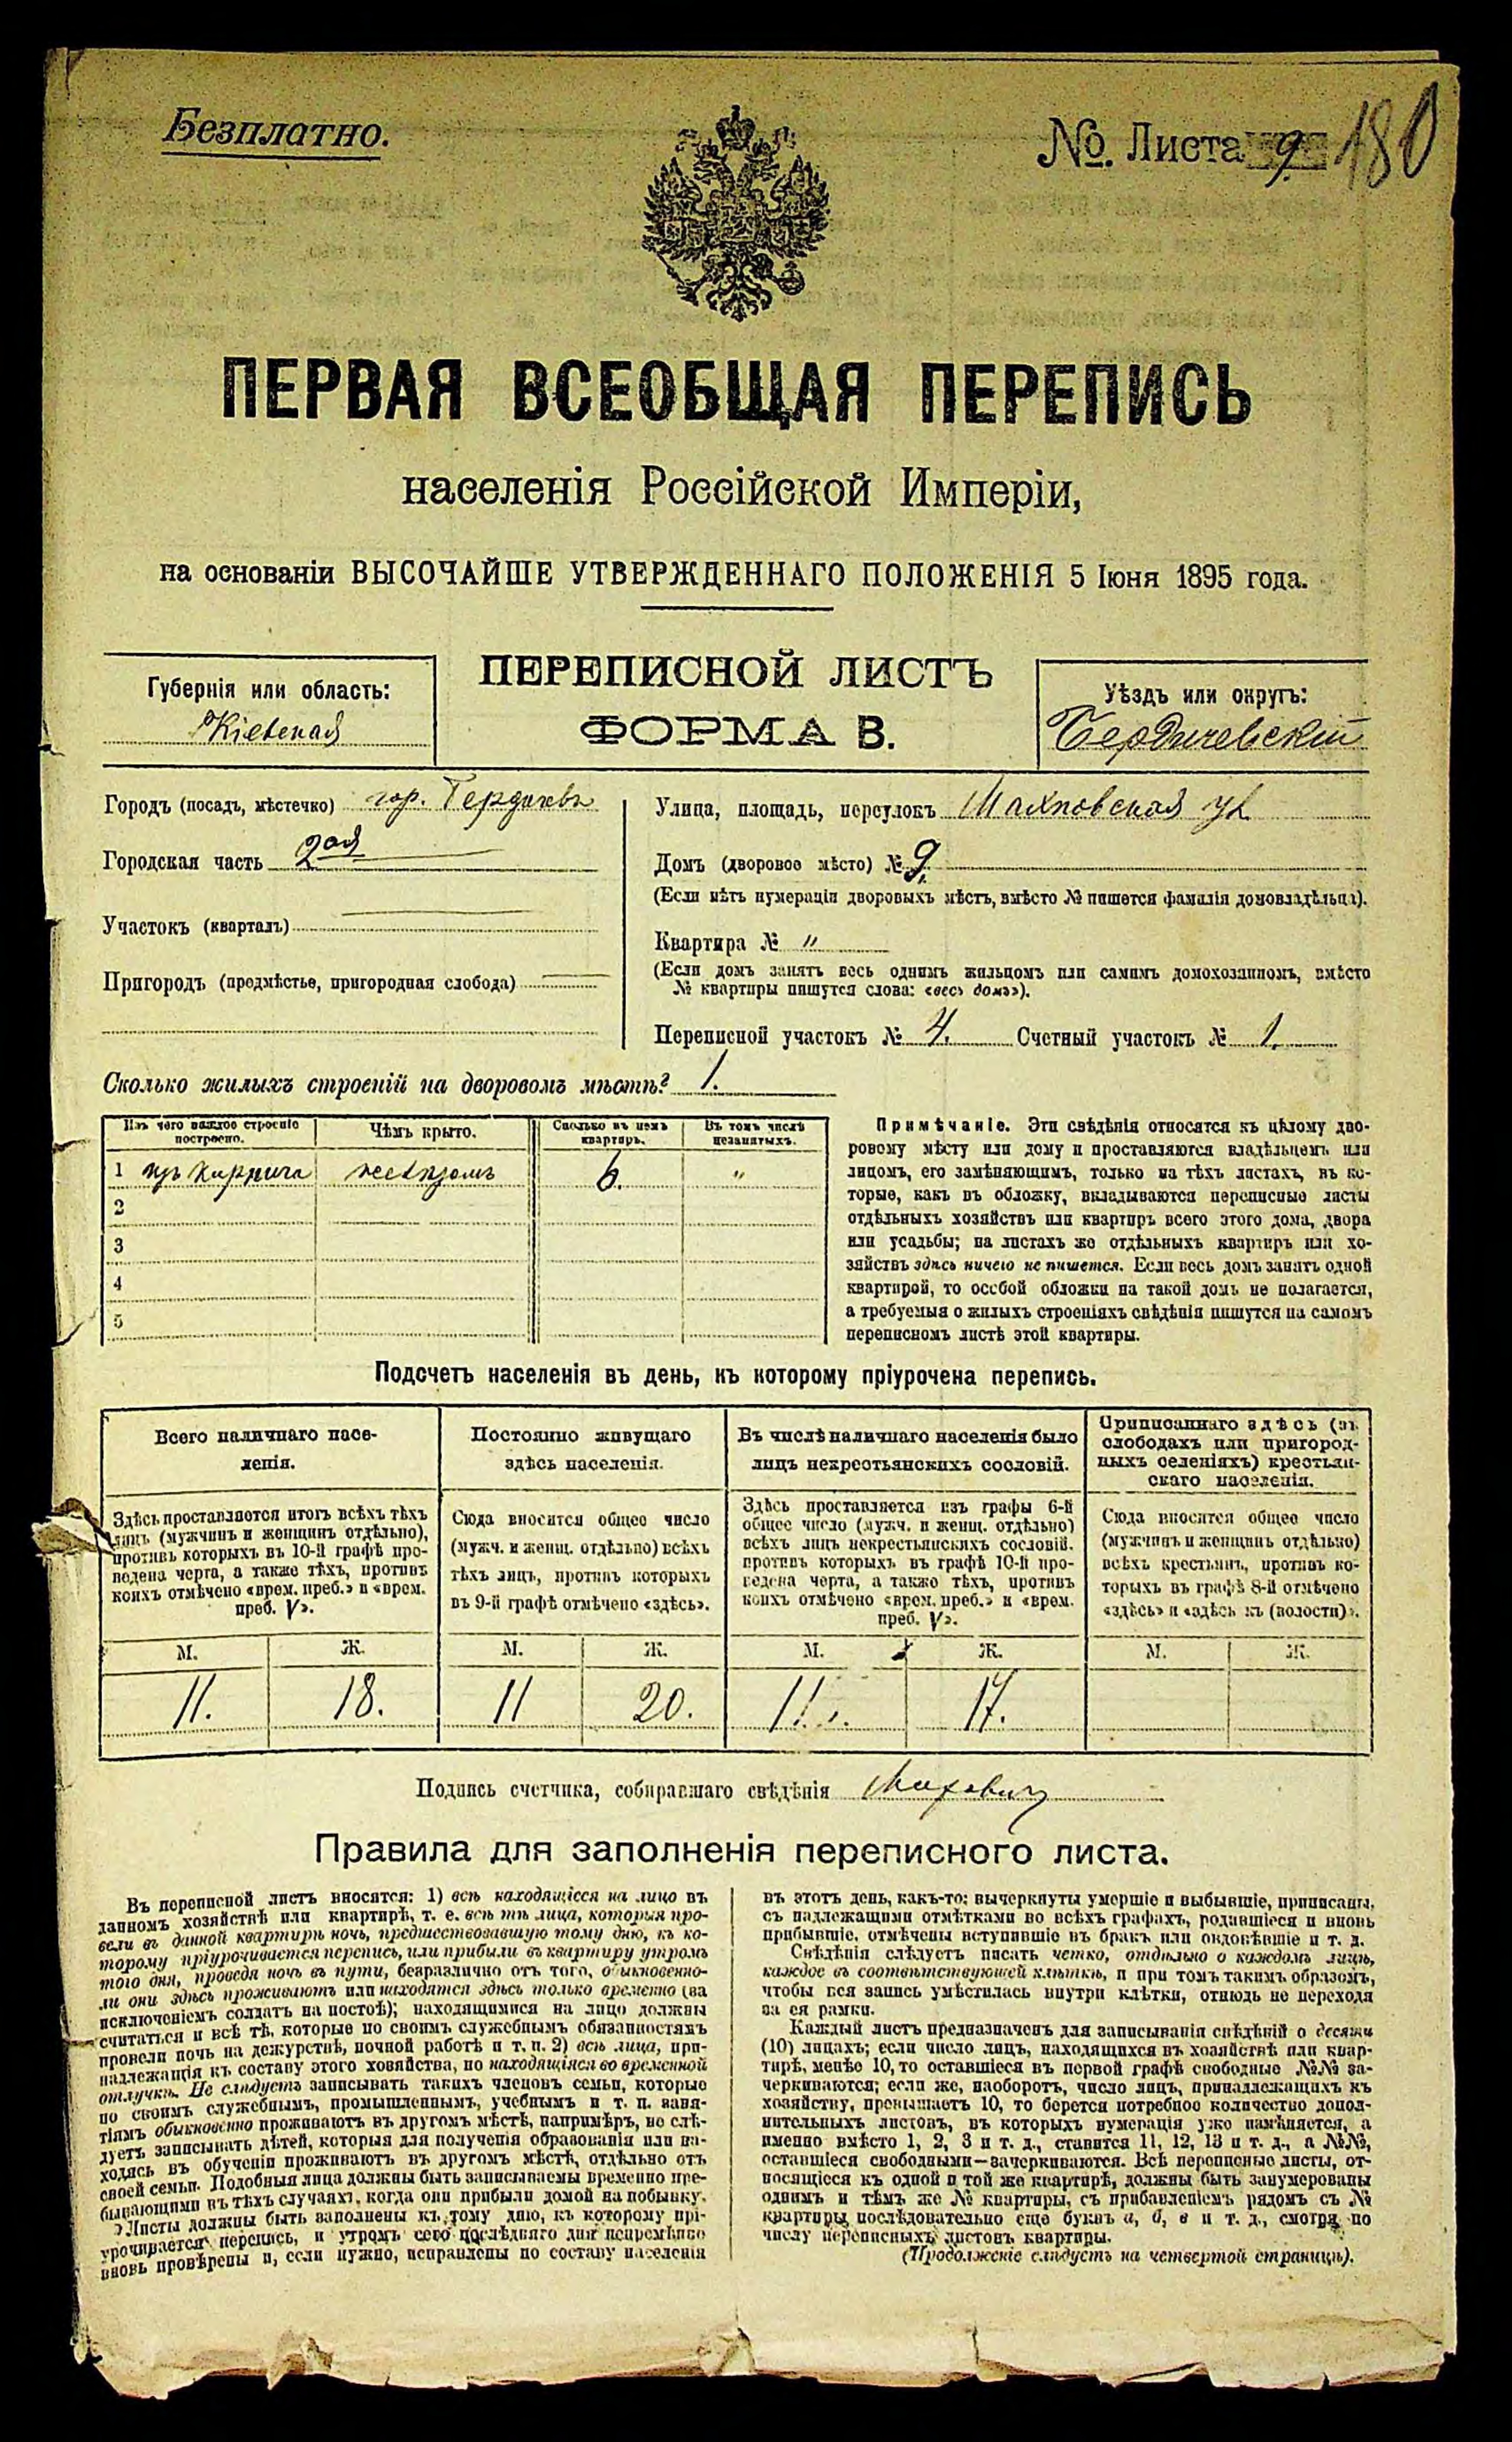 Безплатно.
№. Листа 9. 180
ПЕРВАЯ ВСЕОБЩАЯ ПЕРЕПИСЬ
населенія Россійской Имперіи,
на основаніи ВЫСОЧАЙШЕ УТВЕРЖДЕННАГО ПОЛОЖЕНІЯ 5 Іюня 1895 года.
Губернія или область:
Кіевская
ПЕРЕПИСНОЙ ЛИСТЪ
ФОРМА В.
Уѣздъ или округъ:
Бердичевскій
Городъ (посадъ, мѣстечко) гор. Бердичевъ
Городская часть 2ая
Участокъ (кварталъ)
Пригородъ (предмѣстье, пригородная слобода)
Улица, площадь, переулокъ Махновская ул
Домъ (дворовое мѣсто) № 9.
(Если нѣтъ нумераціи дворовыхъ мѣстъ, вмѣсто № пишется фамилія домовладѣльца).
Квартира № "
(Если домъ занятъ весь однимъ жильцомъ или самимъ домохозяиномъ, вмѣсто
№ квартиры пишутся слова: «весь домъ»).
Переписной участокъ № 4. Счетный участокъ № 1.
Сколько жилыхъ строеній на дворовомъ мѣстѣ? 1.
Изъ чего каждое строеніе построено. Чѣмъ крыто. Сколько въ немъ квартиръ. Въ томъ числѣ незанятыхъ.
1 изъ кирпича желѣзомъ 6. "
2
3
4
5
Примѣчаніе. Эти свѣдѣнія относятся къ цѣлому дво-
ровому мѣсту или дому и проставляются владѣльцемъ или
лицомъ, его замѣняющимъ, только на тѣхъ листахъ, въ ко-
торые, какъ въ обложку, вкладываются переписные листы
отдѣльныхъ хозяйствъ или квартиръ всего этого дома, двора
или усадьбы; на листахъ же отдѣльныхъ квартиръ или хо-
зяйствъ здѣсь ничего не пишется. Если весь домъ занятъ одной
квартирой, то особой обложки на такой домъ не полагается,
а требуемыя о жилыхъ строеніяхъ свѣдѣнія пишутся на самомъ
переписномъ листѣ этой квартиры.
Подсчетъ населенія въ день, къ которому пріурочена перепись.
Всего наличнаго насе-
ленія.
Здѣсь проставляется итогъ всѣхъ тѣхъ
лицъ (мужчинъ и женщинъ отдѣльно),
противъ которыхъ въ 10-й графѣ про-
ведена черта, а также тѣхъ, противъ
коихъ отмѣчено «врем. преб.» и «врем.
преб. V».
М. Ж.
11. 18.
Постоянно живущаго
здѣсь населенія.
Сюда вносится общее число
(мужч. и женщ. отдѣльно) всѣхъ
тѣхъ лицъ, противъ которыхъ
въ 9-й графѣ отмѣчено «здѣсь».
М. Ж.
11 20.
Въ числѣ наличнаго населенія было
лицъ некрестьянскихъ сословій.
Здѣсь проставляется изъ графы 6-й
общее число (мужч. и женщ. отдѣльно)
всѣхъ лицъ некрестьянскихъ сословій,
противъ которыхъ въ графѣ 10-й про-
ведена черта, а также тѣхъ, противъ
коихъ отмѣчено «врем. преб.» и «врем.
преб. V».
М. Ж.
11. 17.
Приписаннаго здѣсь (въ
слободахъ или пригород-
ныхъ селеніяхъ) крестьян-
скаго населенія.
Сюда вносится общее число
(мужчинъ и женщинъ отдѣльно)
всѣхъ крестьянъ, противъ ко-
торыхъ въ графѣ 8-й отмѣчено
«здѣсь» и «здѣсь къ (волости)».
М. Ж.
Подпись счетчика, собиравшаго свѣдѣнія
Правила для заполненія переписного листа.
Въ переписной листъ вносятся: 1) всѣ находящіеся на лицо въ
данномъ хозяйствѣ или квартирѣ, т. е. всѣ тѣ лица, которыя про-
вели въ данной квартирѣ ночь, предшествовавшую тому дню, къ ко-
торому пріурочивается перепись, или прибыли въ квартиру утромъ
того дня, проведя ночь въ пути, безразлично отъ того, обыкновенно-
ли они здѣсь проживаютъ или находятся здѣсь только временно (за
исключеніемъ солдатъ на постоѣ); находящимися на лицо должны
считаться и всѣ тѣ, которые по своимъ служебнымъ обязанностямъ
провели ночь на дежурствѣ, ночной работѣ и т. п. 2) всѣ лица, при-
надлежащія къ составу этого хозяйства, но находящіяся во временной
отлучкѣ. Не слѣдуетъ записывать такихъ членовъ семьи, которые
по своимъ служебнымъ, промышленнымъ, учебнымъ и т. п. заня-
тіямъ обыкновенно проживаютъ въ другомъ мѣстѣ, напримѣръ, не слѣ-
дуетъ записывать дѣтей, которыя для полученія образованія или на-
ходясь въ обученіи проживаютъ въ другомъ мѣстѣ, отдѣльно отъ
своей семьи. Подобныя лица должны быть записываемы временно пре-
бывающими въ тѣхъ случаяхъ, когда они прибыли домой на побывку.
Листы должны быть заполнены къ тому дню, къ которому прі-
урочивается перепись, и утромъ сего послѣдняго дня непремѣнно
вновь провѣрены и, если нужно, исправлены по составу населенія
въ этотъ день, какъ-то: вычеркнуты умершіе и выбывшіе, приписаны,
съ надлежащими отмѣтками во всѣхъ графахъ, родившіеся и вновь
прибывшіе, отмѣчены вступившіе въ бракъ или овдовѣвшіе и т. д.
Свѣдѣнія слѣдуетъ писать четко, отдѣльно о каждомъ лицѣ,
каждое въ соотвѣтствующей клѣткѣ, и при томъ такимъ образомъ,
чтобы вся запись умѣстилась внутри клѣтки, отнюдь не переходя
за ея рамки.
Каждый листъ предназначенъ для записыванія свѣдѣній о десяти
(10) лицахъ; если число лицъ, находящихся въ хозяйствѣ или квар-
тирѣ, менѣе 10, то оставшіеся въ первой графѣ свободные №№ за-
черкиваются; если же, наоборотъ, число лицъ, принадлежащихъ къ
хозяйству, превышаетъ 10, то берется потребное количество допол-
нительныхъ листовъ, въ которыхъ нумерація уже измѣняется, а
именно вмѣсто 1, 2, 3 и т. д., ставится 11, 12, 13 и т. д., а №№,
оставшіеся свободными—зачеркиваются. Всѣ переписные листы, от-
носящіеся къ одной и той же квартирѣ, должны быть занумерованы
однимъ и тѣмъ же № квартиры, съ прибавленіемъ рядомъ съ №
квартиры послѣдовательно еще буквъ а, б, в и т. д., смотря по
числу переписныхъ листовъ квартиры.
(Продолженіе слѣдуетъ на четвертой страницѣ).